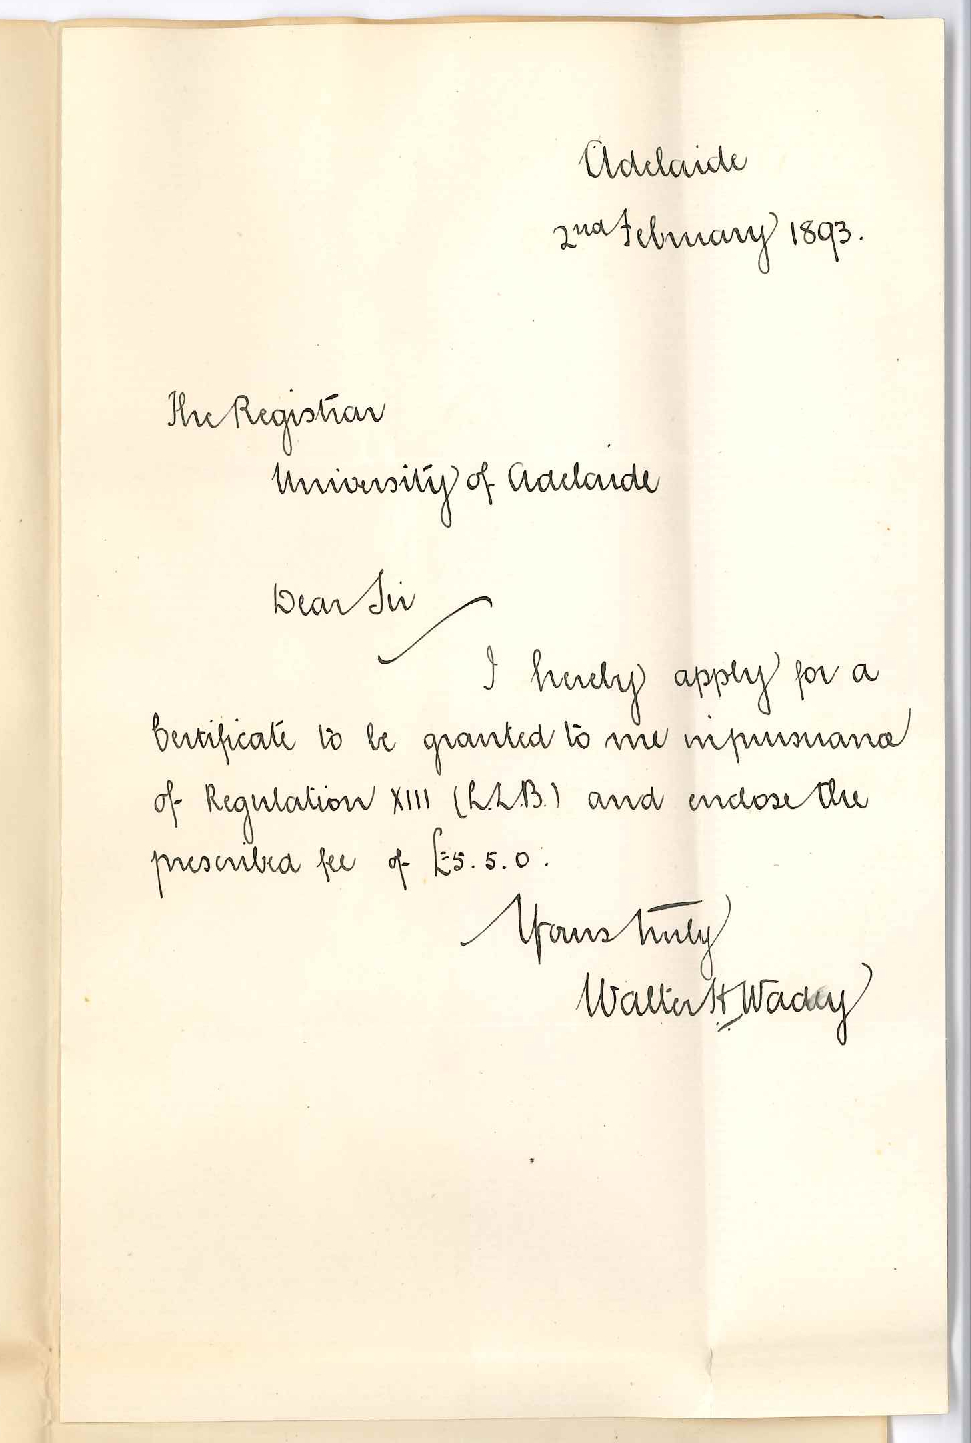 Adelaide
2nd February 1893.
The Registrar
University of Adelaide
Dear Sir
I hereby apply for a
Certificate to be granted to me in pursuance
of Regulation XIII (LL.B.) and enclose the
prescribed fee of £5.5.0.
Yours truly
Walter H Wadey